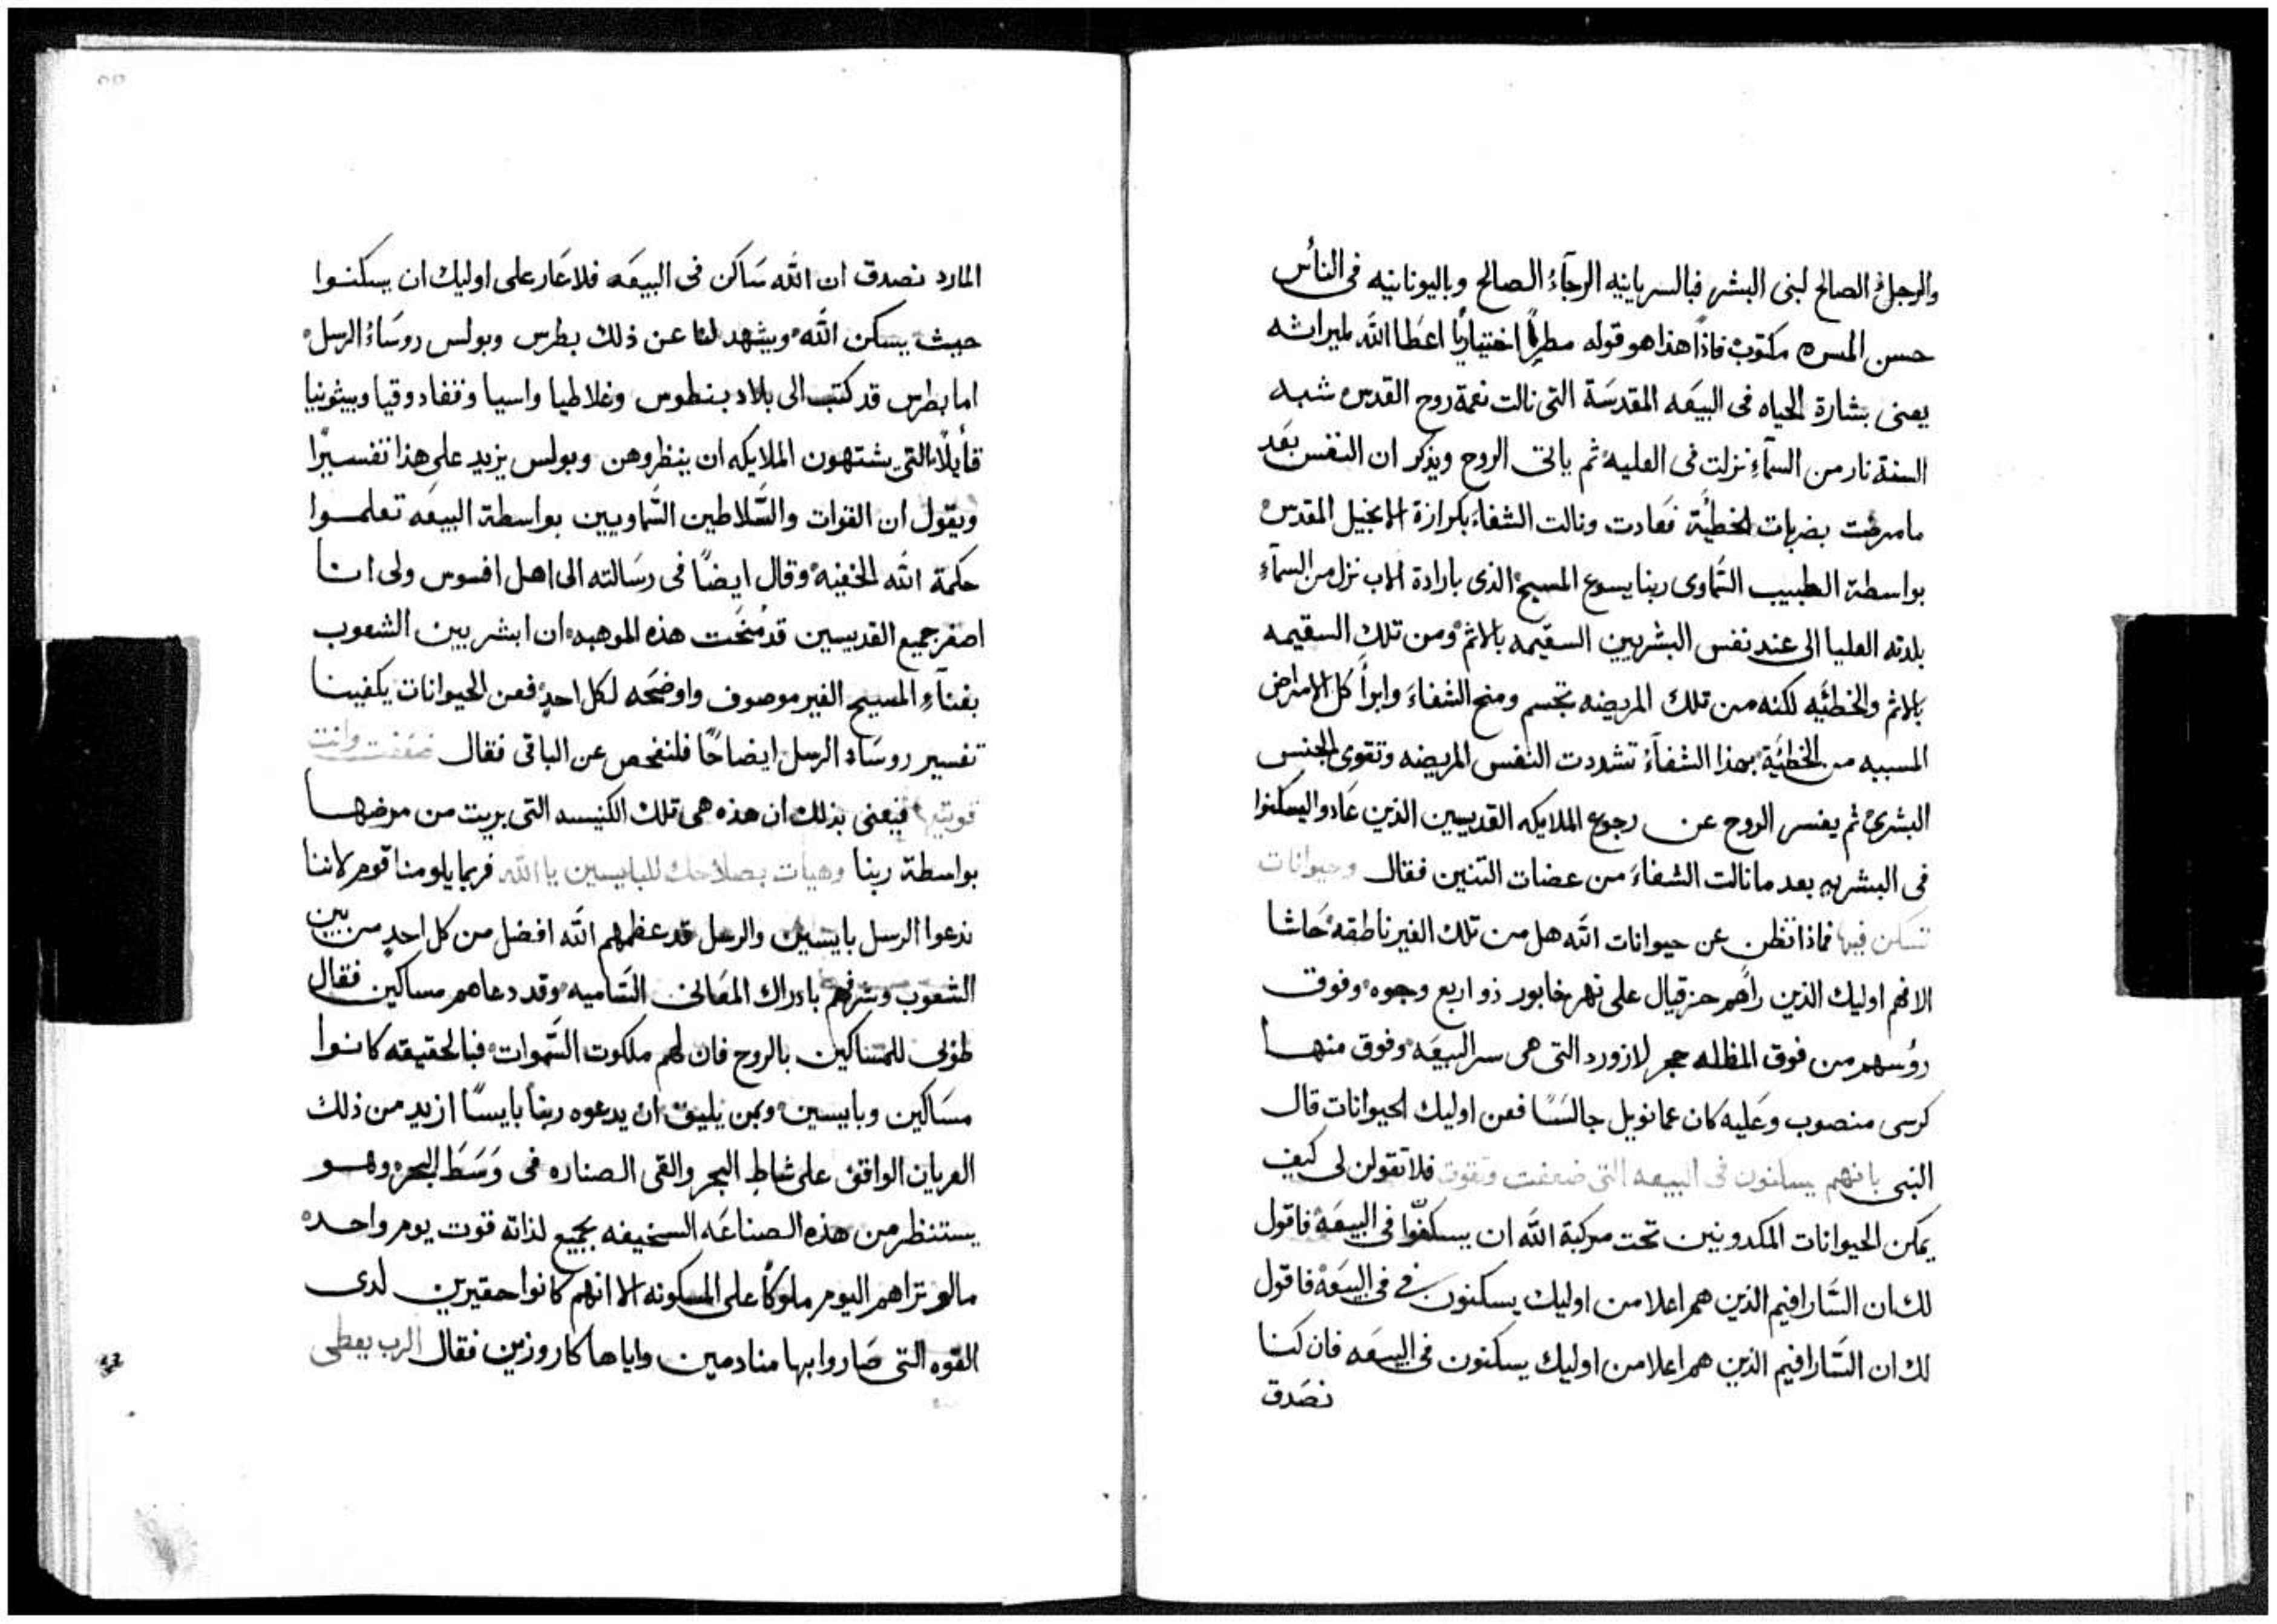 والرجاء الصالح لبنى البشر فبالسريانيه الرجآءُ الصالح وباليونانيه فى الناس
حسن المسره مكتوبْ فاذًا هذا هو قوله مطرًا اختياريًا اعطا الله لميراثه
يعنى بشارة الحياه فى البيعَه المقدسَة التى نالت نعمة روح القدس شبه
السنة نار من السمآءِ نزلت فى العليه ثم ياتى الروح ويذكر ان النفس بعَد
ما مرضت بضربات الخطيَّة فعَادت ونالت الشفاءَ بكرازة الانجيل المقدس
بواسطة الطبيب السَّماوى ربنا يسوع المسيح الذى بارادة الاب نزل من السمآءِ
بلدته العليا الى عند نفس البشريين السقيمه بالاثم ومن تلك السقيمه
بالاثم والخطيَّه لكنه من تلك المريضه تجسم ومنح الشفاءَ وابرأ كل الامراض
المسببه من الخطيَّة بهذا الشفآءُ تشددت النفس المريضه وتقوى الجنس
البشرى ثم يفسر الروح عن رجوع الملايكه القديسين الذين عَادوا ليسكنوا
فى البشريه بعد ما نالت الشفاءَ من عضات التنين فقال وحيوانات
تسَكن فيها فماذا تظن عن حيوانات الله هل من تلك الغير ناطقه حَاشا
الا فهم اوليك الذين رأهم حزقيال على نهر خابور ذو اربع وجوه وفوق
رؤسهم من فوق المظله حجر لازورد التى هى سر البيعَه وفوق منها
كرسى منصوب وعَليه كان عمانويل جالسًا فعن اوليك الحيوانات قال
النبى بانهم يسكنون فى البيعه التى ضعفت وتقوت فلا تقولن لى كيف
يمكن الحيوانات المكدونين تحت مركبة الله ان يسكنوا فى البيعَه فاقول
لك ان السَّارافيم الذين هم اعلا من اوليك يسكنون فى فى البيعَه فاقول
لك ان السَّارافيم الذين هم اعلا من اوليك يسكنون فى البيعَه فان كنا
نصَدق
المارد نصدق ان الله سَاكن فى البيعَه فلا عَار على اوليك ان يسكنوا
حيث يسكن الله ويشهد لنا عن ذلك بطرس وبولس روسَاءُ الرسل
اما بطرس قد كتب الى بلاد بنطوس وغلاطيا واسيا وقفادوقيا وبيثونيا
قأيلًا التى يشتهون الملايكه ان ينظروهن وبولس يزيد على هذا تفسيرًا
ويقول ان القوات والسَّلاطين السَّماويين بواسطة البيعَه تعلموا
حكمة الله الخفيه وقال ايضًا فى رسَالته الى اهل افسوس ولى انا
اصغر جميع القديسين قد مُنحَت هذه الموهبه ان ابشر بين الشعوب
بغنآءِ المسيح الغير موصوف واوضحَه لكل احدٍ فعن الحيوانات يكفينا
تفسير روسَاء الرسل ايضاحًا فلنفحص عن الباقى فقال ضعَفت وانت
قويتها فيعنى بذلك ان هذه هى تلك الكنيسه التى بريت من مرضها
بواسطة ربنا وهيات بصلاحك للبايسين يا الله فربما يلومنا قوم لاننا
ندعوا الرسل بايسين والرسل قد عظمهم الله افضل من كل احدٍ من بين
الشعوب وشرفهم بادراك المعَانى السَّاميه وقد دعاهم مساكين فقال
طوبى للمسَاكين بالروح فان لهم ملكوت السَّموات فبالحقيقه كانوا
مسَاكين وبايسين وبمن يليق ان يدعوه ربنا بايسًا ازيد من ذلك
العريان الواقف على شاطِ البحر والقى الصناره فى وَسَط البحر وهو
يستنظر من هذه الصناعَه السخيفه بجميع لذاته قوت يوم واحده
مالو تراهم اليوم ملوكًا على المسكونه الا انهم كانوا حقيرين لدى
القوه التى صَاروا بها منادمين واياها كاروزين فقال الرب يعطى